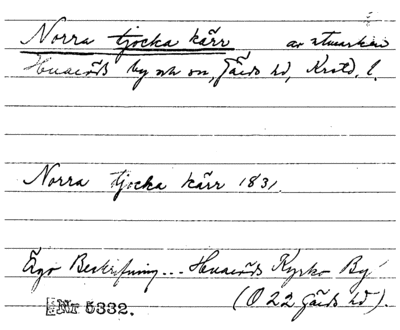 Norra tjocka kärr av utmarken
Hvaeröds by och sn, Gärds hd, Krstd. l.
Norra tjocka kärr 1831.
Ego Beskrifning... Hvaeröds Kyrko By
Nr 5332. (O 22 Gärds hd).